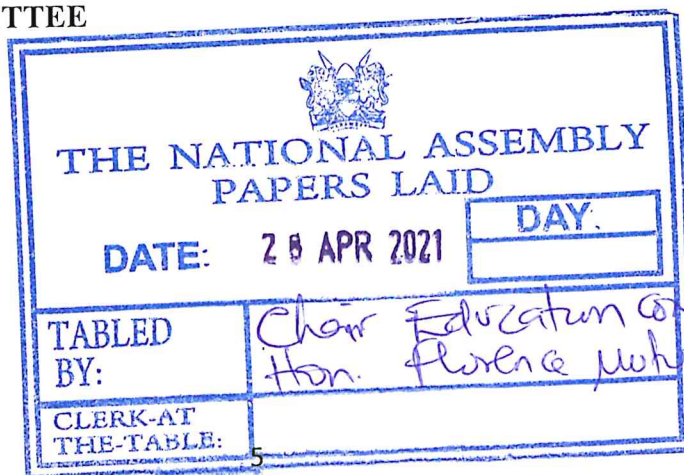 TTEE
THE NATIONAL ASSEMBLY
PAPERS LAID
DATE: 28 APR 2021 DAY:
TABLED BY: Chair Education
Hon. Florence
CLERK-AT
THE-TABLE:
5